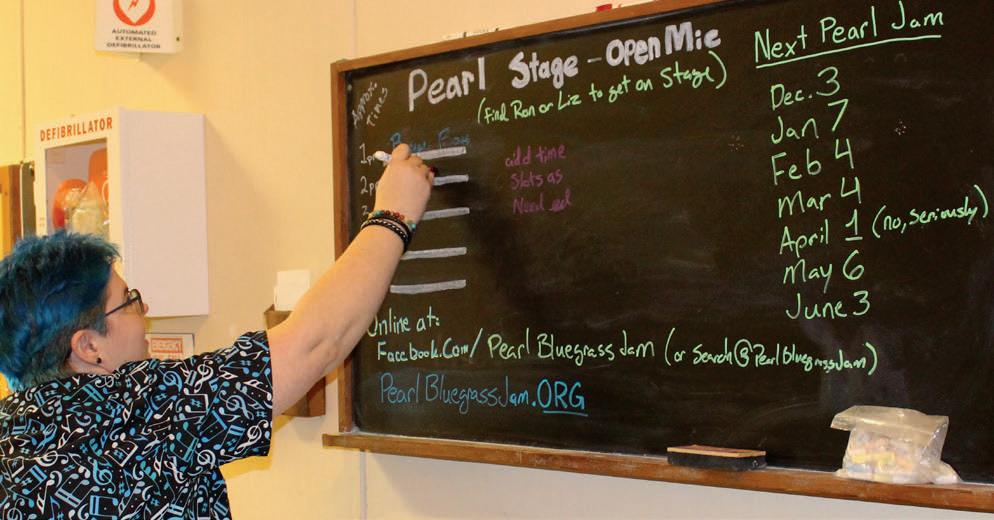 AUTOMATED
EXTERNAL
DEFIBRILLATOR
DEFIBRILLATOR
Pearl Stage - Open Mic
(find Ron or Liz to get on Stage)
Approx.
Times
1pm
2p
add time
Slots as
Needed
Next Pearl Jam
Dec. 3
Jan 7
Feb 4
Mar 4
April 1 (no, seriously)
May 6
June 3
Online at:
Facebook.Com/PearlBluegrassJam (or Search@PearlBluegrassJam)
PearlBluegrassJam.ORG